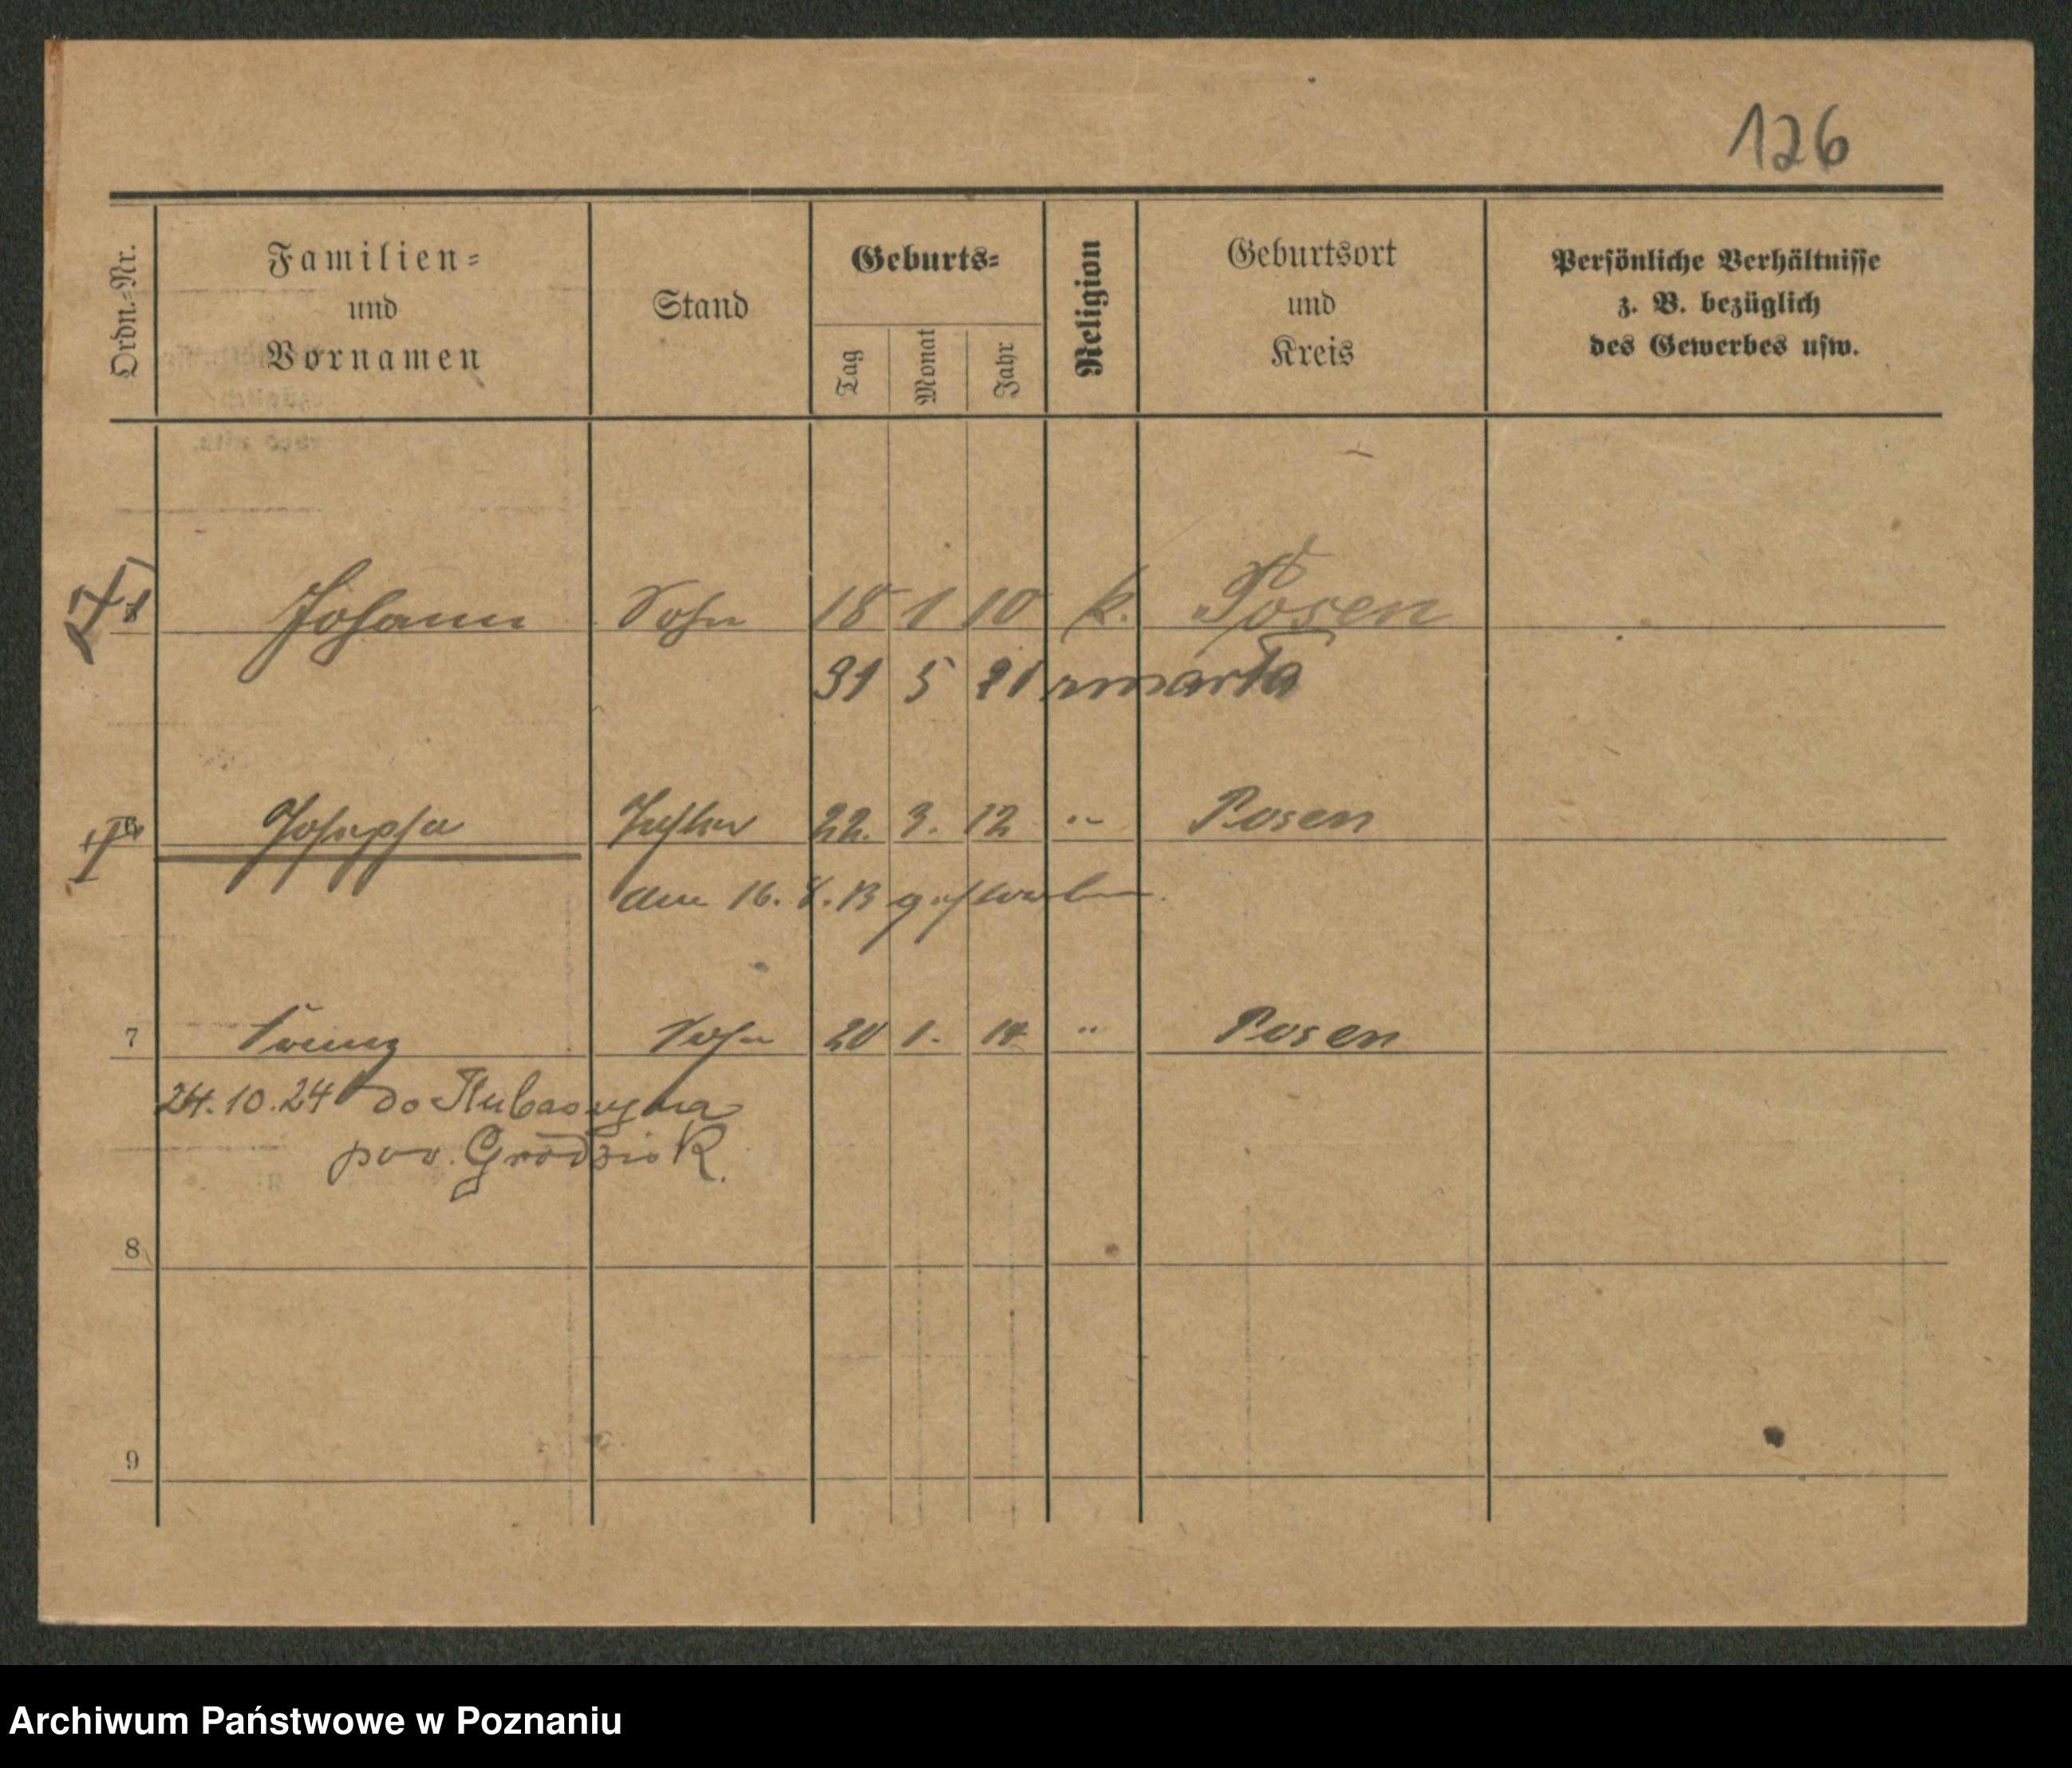 126
Ordn.=Nr.
Familien=
und
Vornamen
Stand
Geburts=
Tag
Monat
Jahr
Religion
Geburtsort
und
Kreis
Persönliche Verhältnisse
z. B. bezüglich
des Gewerbes usw.
Johann Sohn 18 1 10 k. Posen
31 5 21 zmarła
Josepha Tochter 22. 3. 12 " Posen
den 16. 8. 13 gestorben.
7 Franz Sohn 20 1. 14 " Posen
24.10.24 do
pow. Grodzisk.
8
9
Archiwum Państwowe w Poznaniu